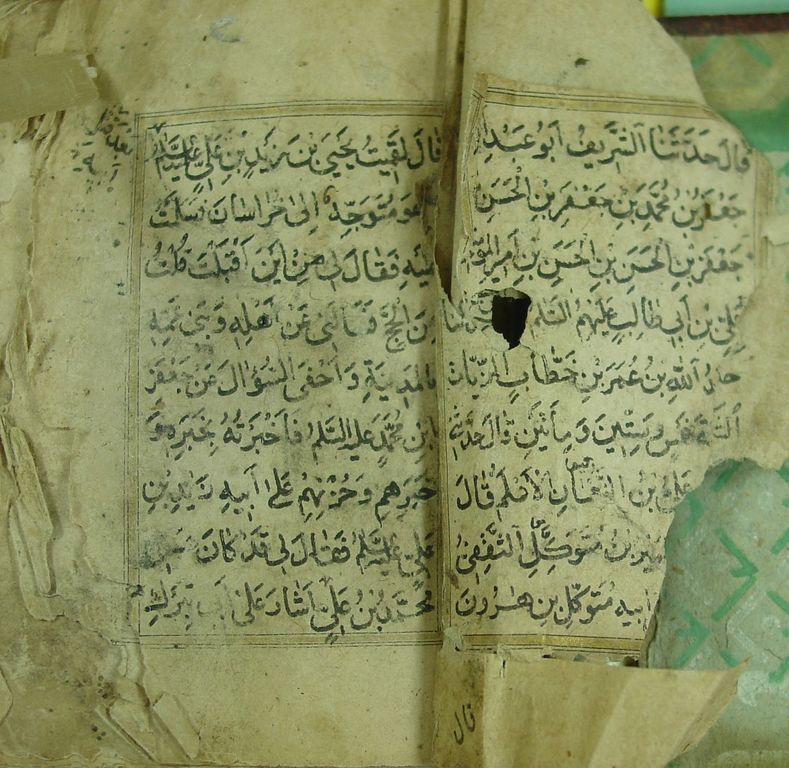 قَالَ حَدَّثَنَا الشَّرِيفُ اَبُو عَبْدِ
جَعْفَرُ بْنُ مُحَمَّدِ بْنِ جَعْفَرِ بْنِ الْحَسَنِ
جَعْفَرِ بْنِ الْحَسَنِ بْنِ الْحَسَنِ بْنِ اَمِيرِ
عَلِيِّ بْنِ اَبِي طَالِبٍ عَلَيْهِمُ السَّلَمُ
اللّٰهِ بْنُ عُمَرَ بْنِ خَطَّابٍ الزَّيَّاتُ
خَمْسٍ وَسِتِّينَ وَمِأَتَيْنِ قَالَ حَدَّثَنِي
عَلِيُّ بْنُ النُّعْمَانِ الْاَعْلَمُ قَالَ
بْنُ مُتَوَكِّلٍ الثَّقَفِيُّ
اَبِيهِ مُتَوَكِّلِ بْنِ هٰرُونَ
قال
قَالَ لَقِيتُ يَحْيَى بْنَ زَيْدِ بْنِ عَلِيٍّ عليه السلم
وَهُوَ مُتَوَجِّهٌ اِلٰى خُرَاسَانَ فَسَلَّمْتُ
عَلَيْهِ فَقَالَ لِي مِنْ اَيْنَ اَقْبَلْتَ قُلْتُ
مِنَ الْحَجِّ فَسَالَنِي عَنْ اَهْلِهِ وَبَنِي عَمِّهِ
بِالْمَدِينَةِ وَاَحْفَى السُّؤَالَ عَنْ جَعْفَرِ
بْنِ مُحَمَّدٍ عليه السلم فَاَخْبَرْتُهُ بِخَبَرِهِ وَ
خَبَرِهِمْ وَحُزْنِهِمْ عَلٰى اَبِيهِ زَيْدِ بْنِ
عَلِيٍّ عليه السلم فَقَالَ لِي قَدْ كَانَ
مُحَمَّدُ بْنُ عَلِيٍّ اَشَارَ عَلٰى اَبِي بِتَرْكِ